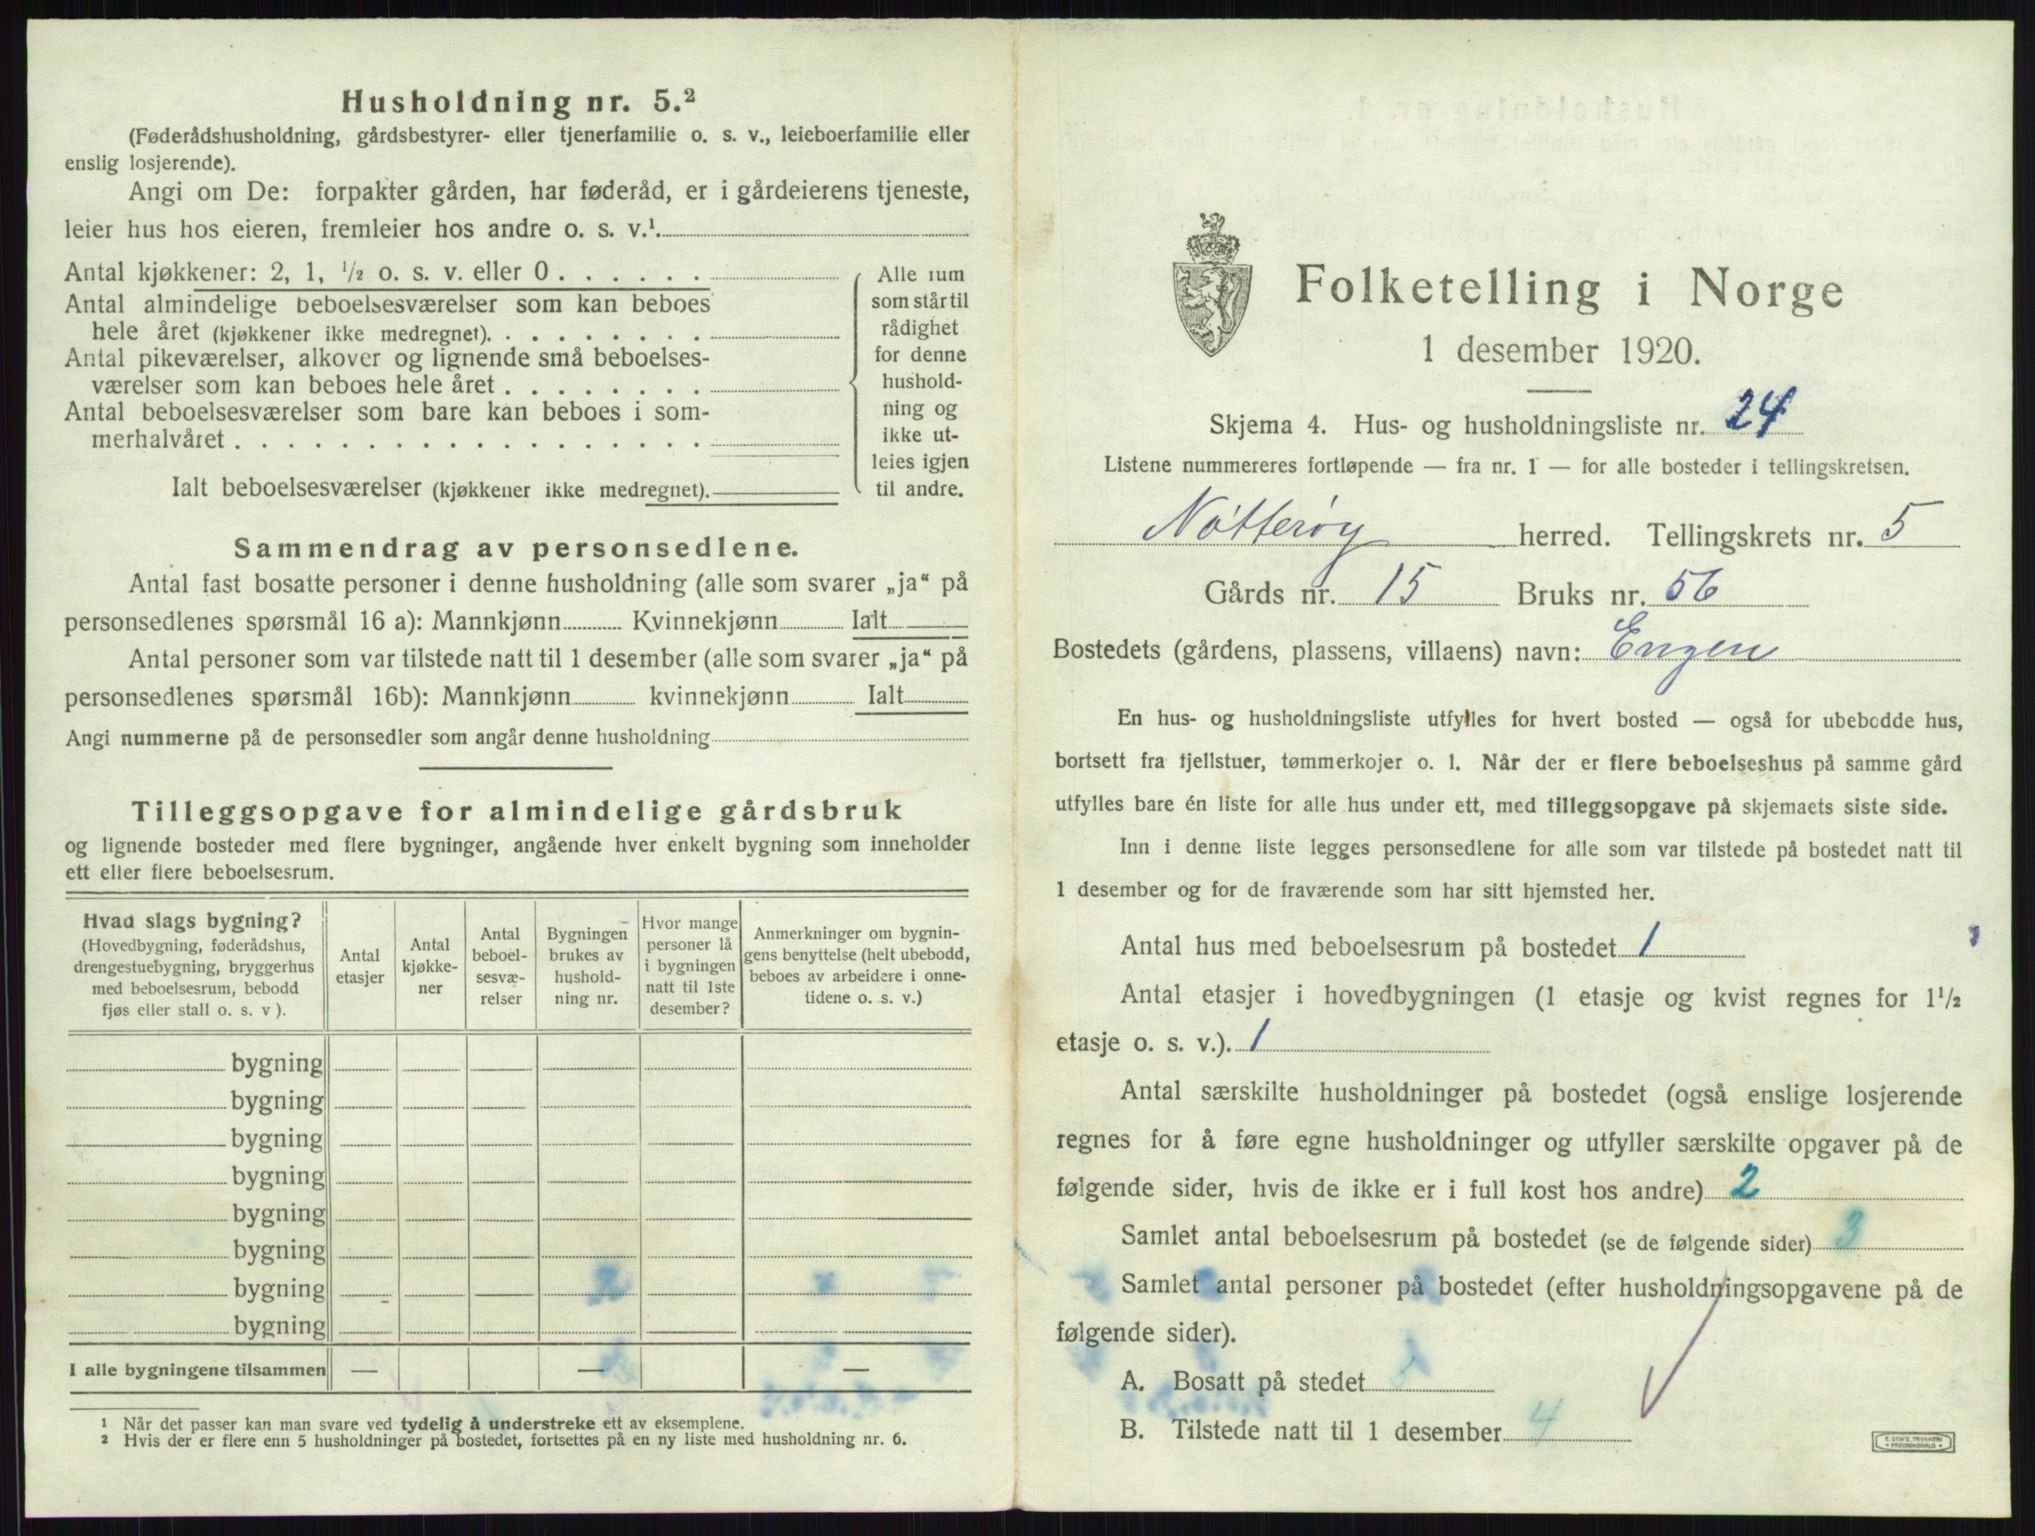 Husholdning nr. 5.²
(Føderådshusholdning, gårdsbestyrer- eller tjenerfamilie o. s. v., leieboerfamilie eller
enslig losjerende).
Angi om De: forpakter gården, har føderåd, er i gårdeierens tjeneste,
leier hus hos eieren, fremleier hos andre o. s. v.¹.
Antal kjøkkener: 2, 1, ½ o. s. v. eller 0 . . . . . .
Antal almindelige beboelsesværelser som kan beboes
hele året (kjøkkener ikke medregnet). . . . . . . . .
Antal pikeværelser, alkover og lignende små beboelses-
værelser som kan beboes hele året . . . . . . . .
Antal beboelsesværelser som bare kan beboes i som-
merhalvåret . . . . . . . . . . . . . . . . . .
Ialt beboelsesværelser (kjøkkener ikke medregnet).
Alle rum
som står til
rådighet
for denne
hushold-
ning og
ikke ut-
leies igjen
til andre.
Sammendrag av personsedlene.
Antal fast bosatte personer i denne husholdning (alle som svarer „ja“ på
personsedlenes spørsmål 16 a): Mannkjønn Kvinnekjønn Ialt
Antal personer som var tilstede natt til 1 desember (alle som svarer „ja“ på
personsedlenes spørsmål 16b): Mannkjønn kvinnekjønn Ialt
Angi nummerne på de personsedler som angår denne husholdning
Tilleggsopgave for almindelige gårdsbruk
og lignende bosteder med flere bygninger, angående hver enkelt bygning som inneholder
ett eller flere beboelsesrum.
Hvad slags bygning?
(Hovedbygning, føderådshus,
drengestuebygning, bryggerhus
med beboelsesrum, bebodd
fjøs eller stall o. s. v ).
Antal
etasjer
Antal
kjøkke-
ner
Antal
beboel-
sesvæ-
relser
Bygningen
brukes av
hushold-
ning nr.
Hvor mange
personer lå
i bygningen
natt til 1ste
desember?
Anmerkninger om bygnin-
gens benyttelse (helt ubebodd,
beboes av arbeidere i onne-
tidene o. s. v.)
bygning
bygning
bygning
bygning
bygning
bygning
bygning
bygning
I alle bygningene tilsammen — — —
¹ Når det passer kan man svare ved tydelig å understreke ett av eksemplene.
² Hvis der er flere enn 5 husholdninger på bostedet, fortsettes på en ny liste med husholdning nr. 6.
Folketelling i Norge
1 desember 1920.
Skjema 4. Hus- og husholdningsliste nr. 24
Listene nummereres fortløpende — fra nr. 1 — for alle bosteder i tellingskretsen.
Nøtterøy herred. Tellingskrets nr. 5
Gårds nr. 15 Bruks nr. 56
Bostedets (gårdens, plassens, villaens) navn: Engen
En hus- og husholdningsliste utfylles for hvert bosted — også for ubebodde hus,
bortsett fra fjellstuer, tømmerkojer o. l. Når der er flere beboelseshus på samme gård
utfylles bare én liste for alle hus under ett, med tilleggsopgave på skjemaets siste side.
Inn i denne liste legges personsedlene for alle som var tilstede på bostedet natt til
1 desember og for de fraværende som har sitt hjemsted her.
Antal hus med beboelsesrum på bostedet 1
Antal etasjer i hovedbygningen (1 etasje og kvist regnes for 1½
etasje o. s. v.). 1
Antal særskilte husholdninger på bostedet (også enslige losjerende
regnes for å føre egne husholdninger og utfyller særskilte opgaver på de
følgende sider, hvis de ikke er i full kost hos andre) 2
Samlet antal beboelsesrum på bostedet (se de følgende sider) 3
Samlet antal personer på bostedet (efter husholdningsopgavene på de
følgende sider).
A. Bosatt på stedet
B. Tilstede natt til 1 desember 4